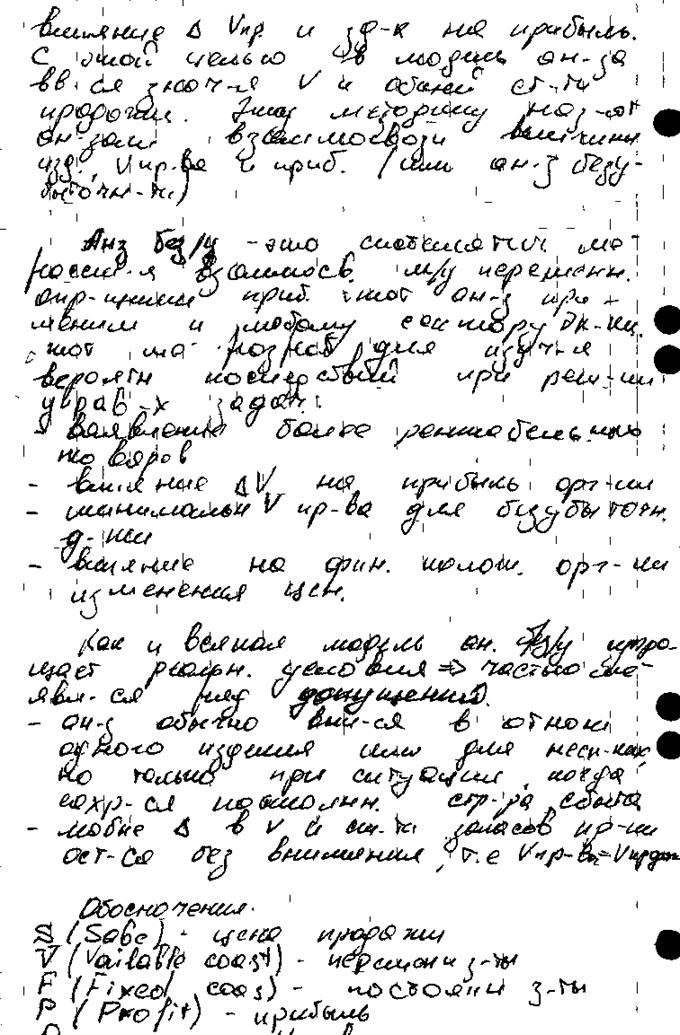 влияние Δ Vпр. и за-к на прибыль.
С этой целью в модель ан-за
вв-ся знач-я V и общей ст-ти
продаж. Эту методику наз-ют
ан-зом взаимосвязи величины
изд., Vпр-ва и приб. (или ан-з безу-
быточн-ти)
Анз без/у - это систематич.
взаимосв. м/у переменн.
опр-щими приб. этот ан-з при-
меним к любому сектору эк-ки.
этот для изуч-я
вероятн последствий при реш-ии
управ-х задач:
- выявление более рентабельных
товаров
- влияние ΔV на прибыль орг-ии
- минимальн V пр-ва для безубыточн.
д-ти
- влияние на фин. полож. орг-ии
изменения цен.
Как и всякая модель ан. без/у упро-
щает реальн. условия => частью ее
явл-ся ряд допущений.
- ан-з обычно вып-ся в отнош
одного изделия или для неск-ких,
но только при ситуации, когда
сохр-ся постоянн. стр-ра сбыта
- любые Δ в V и ст-ти запасов пр-ии
ост-ся без внимания, т.е Vпр-ва=Vпродаж
Обозначения.
S (Sabe) - цена продажи
V (Vailable coast) - переменн з-ты
F (Fixed coas) - постоянн з-ты
P (Profit) - прибыль